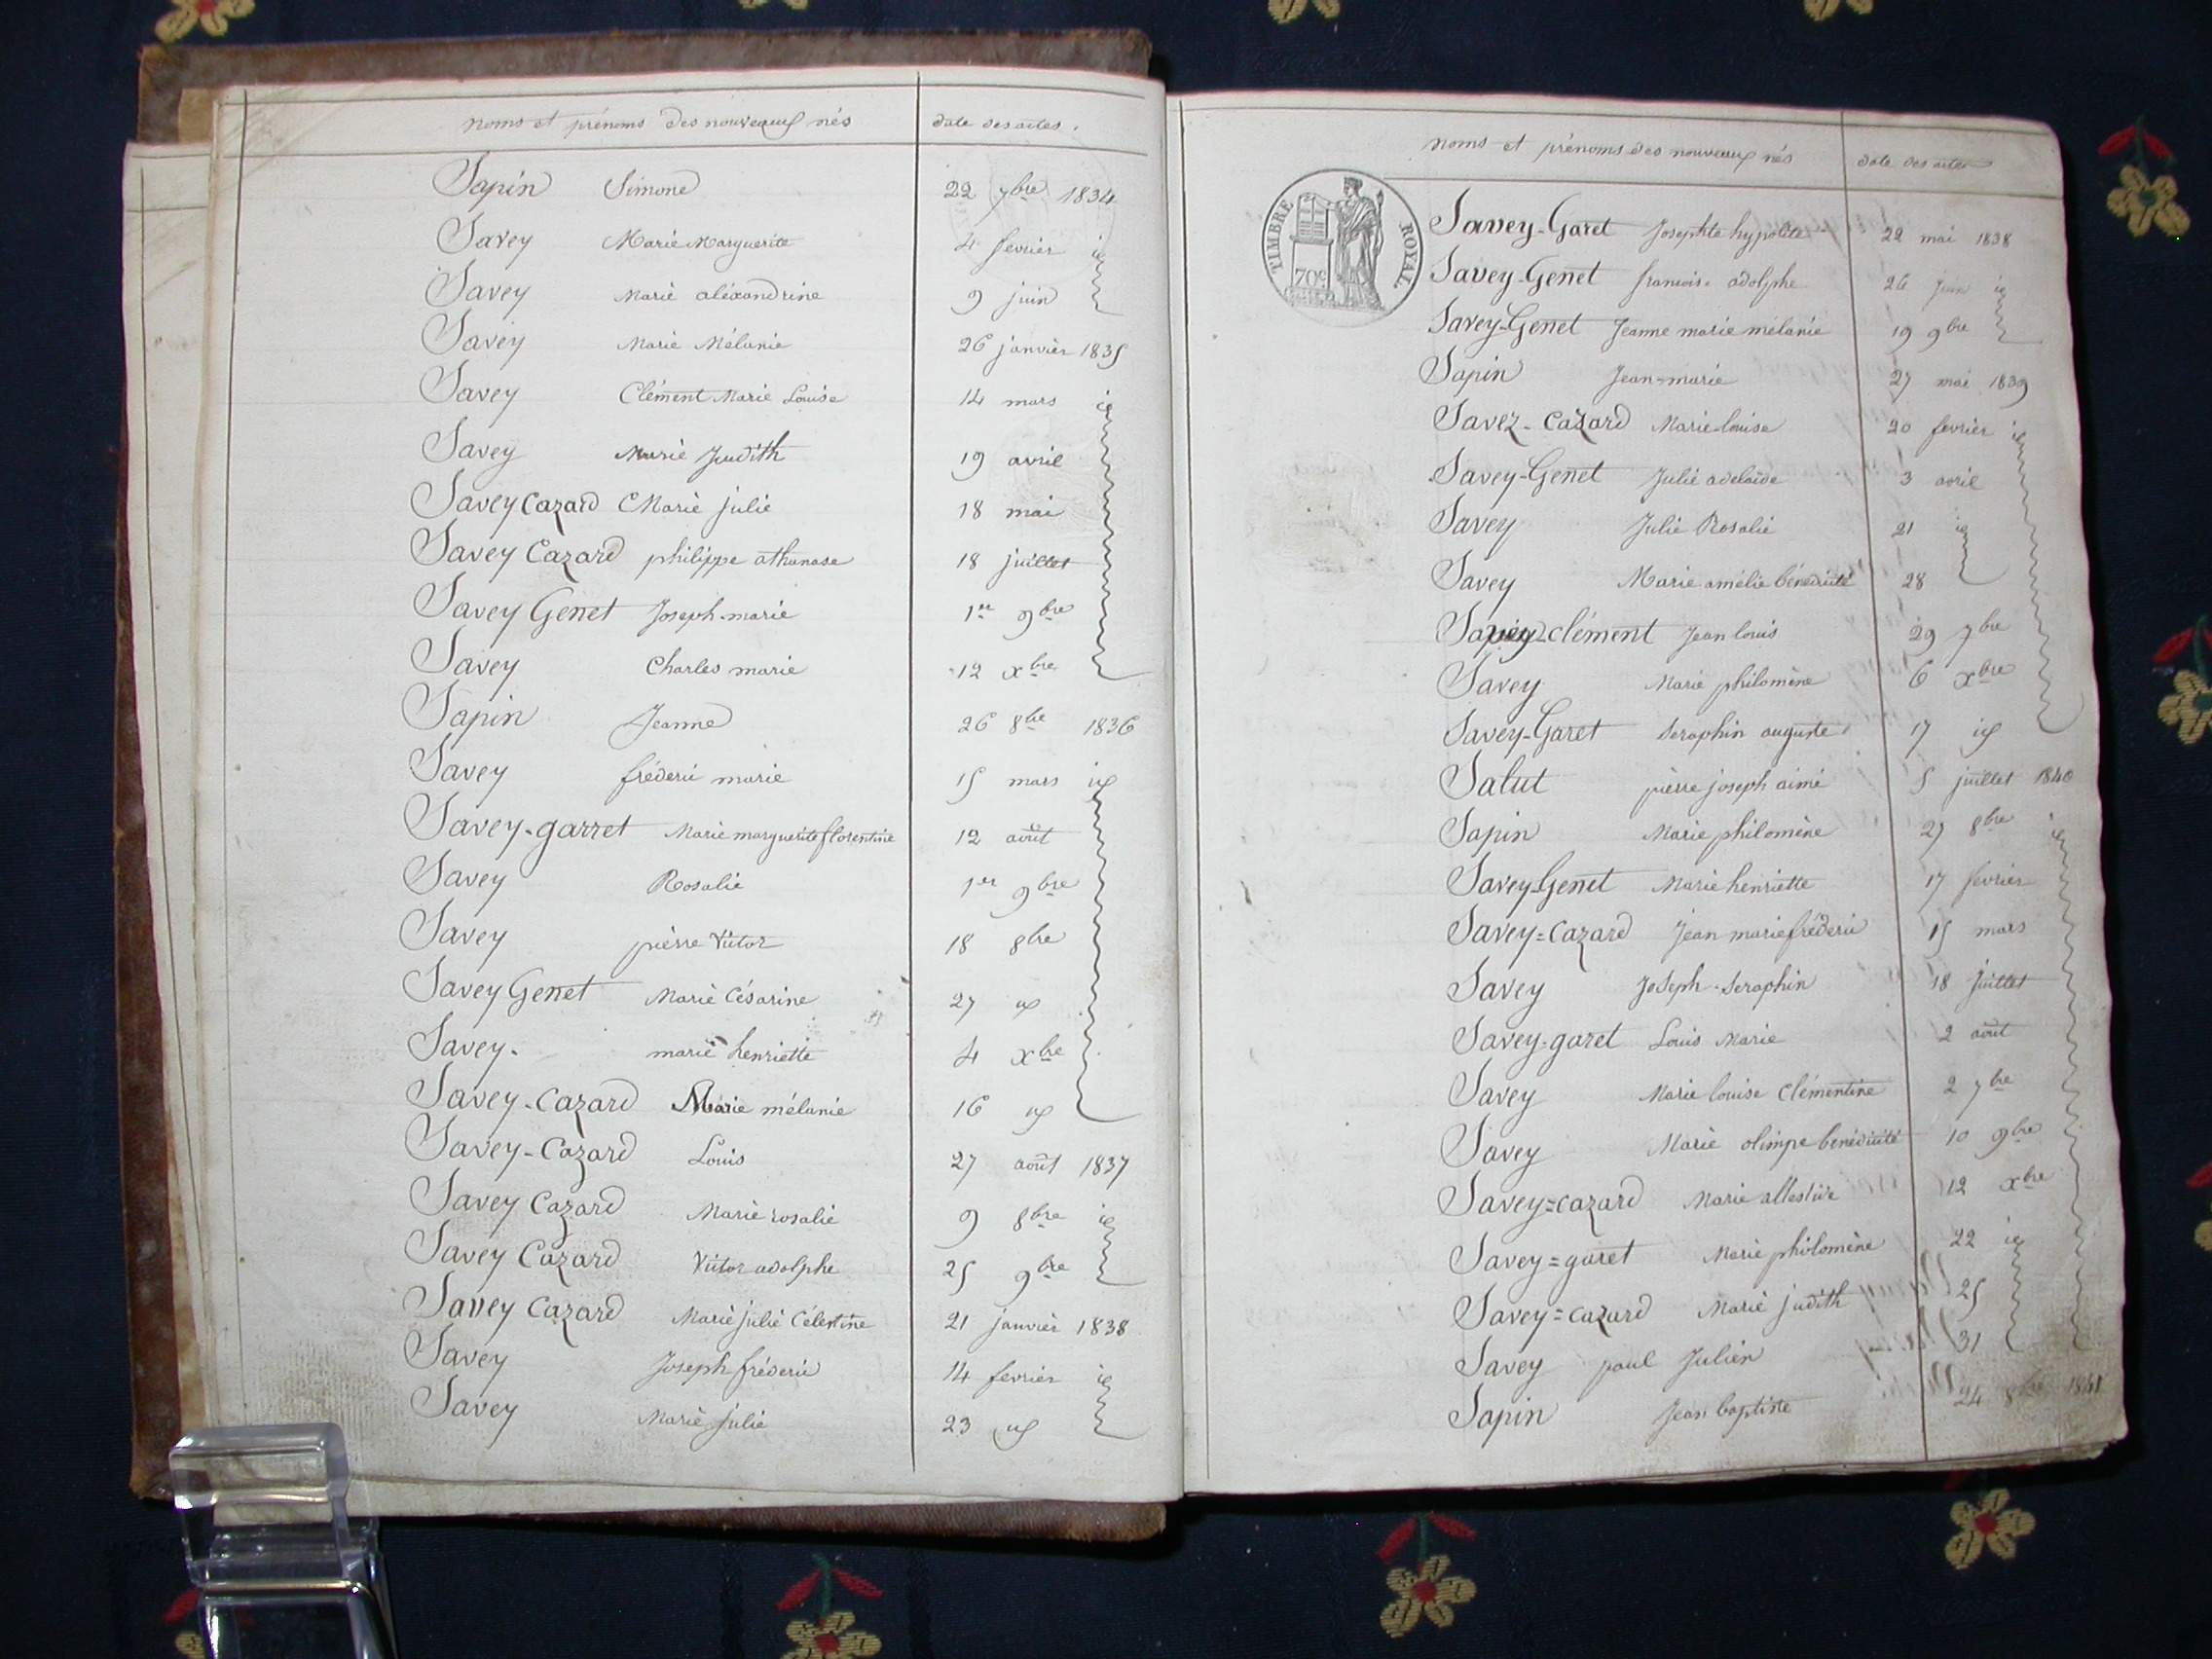 noms et prénoms des nouveaux nés date des actes.
Sapin Simone 22 7bre 1834
Savey Marie Marguerite 4 fevrier id
Savey Marie aléxandrine 9 juin
Savey Marie Mélanie 26 janvier 1835
Savey Clément Marie Louise 14 mars id
Savey Marie Judith 19 avril
Savey Cazard Marie julie 18 mai
Savey Cazard philippe athanase 18 juillet
Savey Genet Joseph-marie 1er 9bre
Savey Charles marie 12 xbre
Sapin Jeanne 26 8bre 1836
Savey fréderic marie 15 mars id
Savey-garret Marie marguerite florentine 12 août
Savey Rosalie 1er 9bre
Savey pierre Victor 18 8bre
Savey Genet Marie Césarine 27 id
Savey. marie henriette 4 xbre
Savey-Cazard Marie mélanie 16 id
Savey-Cazard Louis 27 août 1837
Savey Cazard Marie rosalie 9 8bre id
Savey Cazard Victor adolphe 25 9bre
Savey Cazard Marie julie Célestine 21 janvier 1838
Savey Joseph fréderic 14 fevrier id
Savey Marie julie 23 id
noms et prénoms des nouveaux nés date des actes
TIMBRE ROYAL
70c
Savey-Garet Josephte hypolite 22 mai 1838
Savey-Genet francois adolphe 26 juin id
Savey-Genet Jeanne marie mélanie 19 9bre
Sapin Jean-marie 27 mai 1839
Savez-Cazard Marie-louise 20 fevrier id
Savey-Genet Julie adelaïde 3 avril
Savey Julie Rosalie 21 id
Savey Marie amélie bénédicité 28
Savey-clément Jean louis 29 7bre
Savey Marie philomène 6 xbre
Savey-Garet Seraphin auguste 17 id
Salut pierre joseph aimé 5 juillet 1840
Sapin Marie philomène 27 8bre id
Savey Genet Marie henriette 17 fevrier
Savey=Cazard Jean marie fréderic 15 mars
Savey Joseph-Seraphin 18 Juillet
Savey-garet Louis Marie 2 août
Savey Marie louise Clémentine 2 7bre
Savey Marie olimpe bénédicité 10 9bre
Savey=cazard Marie 12 xbre
Savey=garet Marie philomène 22 id
Savey=cazard Marie judith 25
Savey paul Julien 31
Sapin Jean baptiste 24 8bre 1841